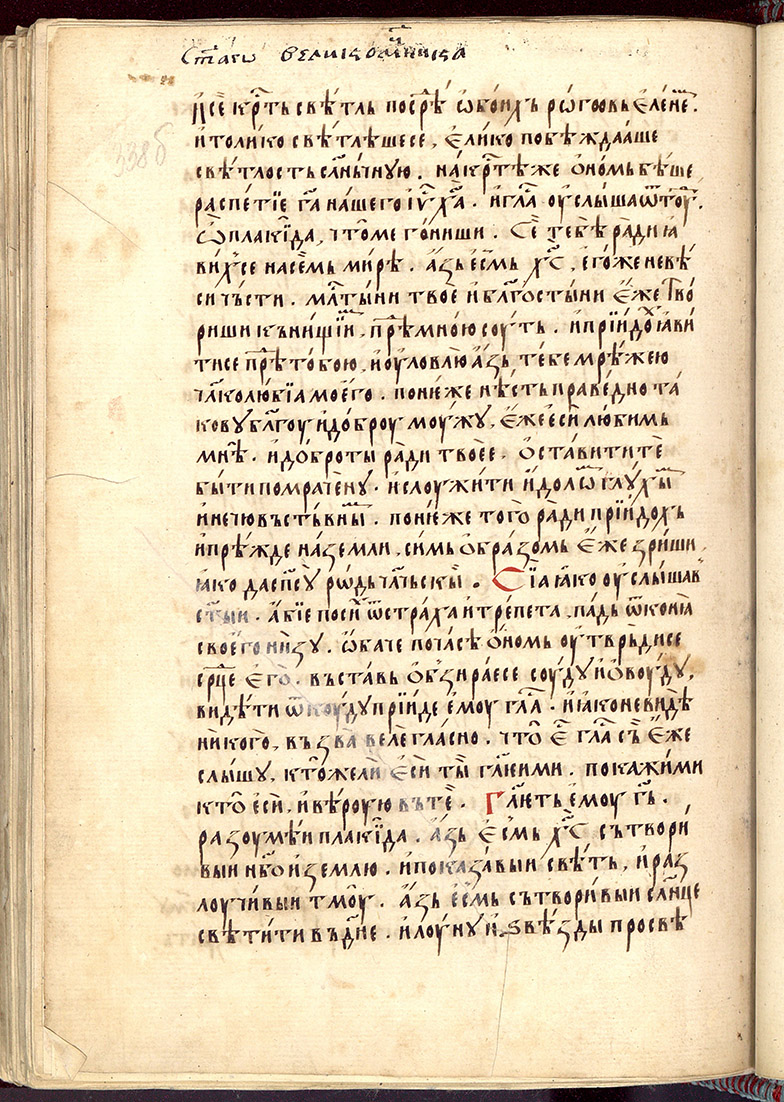 Ст҃аго великомч҃ника
338б
И се крⷭ҇ть свѣтль посрⷣѣ ѡбоихъ рѡговь еленеⷨ.
и толико свѣтлѣше се, елико побѣждааше
свѣтлость слн҃чную. на крⷭ҇тѣ же ономь бѣше
распетїе гⷭ҇а нашего іу҃ х҃а. и глⷭ҇а оуслыша ѿ того.
Ѽ плакⷣида, что ме гониши. Се тебѣ ради ꙗ
вих се на семь мирѣ. азь есⷨь х҃с, егоже невѣ
си чъсти. млⷭ҇тыни твое и блг҃остыни еже тво
риши къ нищїиⷨ, прⷣѣ мною соуть. и прїидоⷯ ꙗви
ти се прⷣѣ тобою, и оуловлю азь тебе мрѣжею
чл҃колюбїа моего. понеже нѣсть праведно та
кову бл҃гоу и доброу моужу, еже еси любимь
мнѣ. и доброты ради твоее. оставити те
быти помрачену. и слоужити идолоⷨ глухыⷨ
и нечювьствныⷨ. понеже того ради прїидохь
и прѣжде на земли, симь образомь еже зриши,
ꙗко да спⷭ҇у рѡдь чл҃чьскыи. Сїа ꙗко оуслышав
ст҃ыи. абїе посиⷯ ѿ страха и трепета, падь ѿ конꙗ
своего низу. ѡбаче по часѣ ономь оутврьди се
срⷣце его. въставь обзираесе соуду и овоуду,
видѣти ѿкоуду прїиде емоу глⷭ҇а. и ꙗко не видѣ
никого, възва велегласно. что е глⷭ҇а съ еже
слышу, кто же ли еси ты гл҃еи ми. покажи ми
кто еси, и вѣроую въ те. Гл҃ють емоу гⷭ҇ь.
разоумѣи плакида. азь есмь х҃с сътвори
выи нб҃о и землю. и показавыи свѣть, и раз
лоучивыи тмоу. азь есмь сътворивыи слн҃це
свѣтити въ дн҃е. и лоуну и ѕвѣзды просвѣ